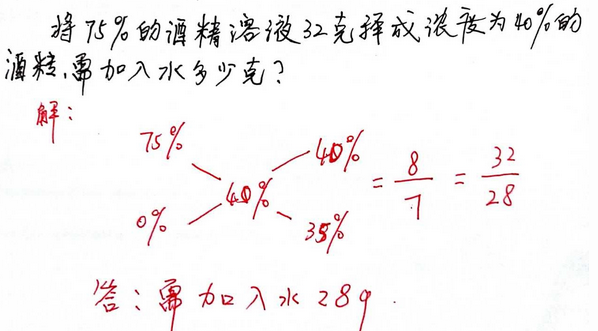 将75%的酒精溶液32克释成浓度为40%的
酒精,需加入水多少克?
解:
75% 40%
40% = 8/7 = 32/28
0% 35%
答:需加入水28g.